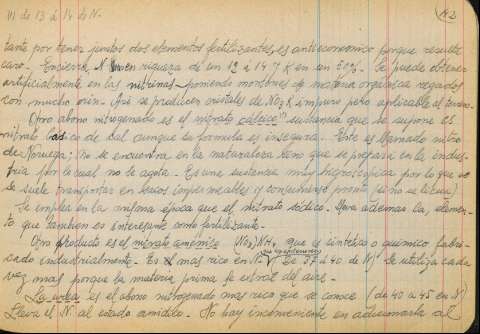 11 de 13 á 14 de N.
tante por tener juntos dos elementos fertilizantes, es antieconómico porque resulta
caro. Encierra N en riqueza de un 12 á 14 y K en un 50%. Se puede obtener
artificialmente en las nitrinas poniendo montones de materia orgánica regados
con mucho orin. Así se producen cristales de NO3K impuro pero aplicable al terreno.
Otro abono nitrogenado es el nitrato cálcico sustancia que se supone es
nitrato básico de cal aunque su formula es insegura. Este es llamado nitro
de Noruega; no se encuentra en la naturaleza sino que se prepara en la indus-
tria por lo cual no se agota. Es una sustancia muy higroscópica por lo que se
le suele transportar en sacos impermeables y consumirlo pronto
Se emplea en la misma época que el nitrato sódico. lleva ademas Ca, elemen-
to que tambien es interesante como fertilizante.
Otro producto es el nitrato amónico (NO3)NH4 que es sintético o quimico, fabri-
cado industrialmente. Es el mas rico en N De 37 a 40 de N. Se utiliza cada
vez mas porque la materia prima se extrae del aire.
La urea es el abono nitrogenado mas rico que se conoce (de 40 a 45 en N)
Lleva el N. al estado amidico. No hay inconveniente en adicionarla al